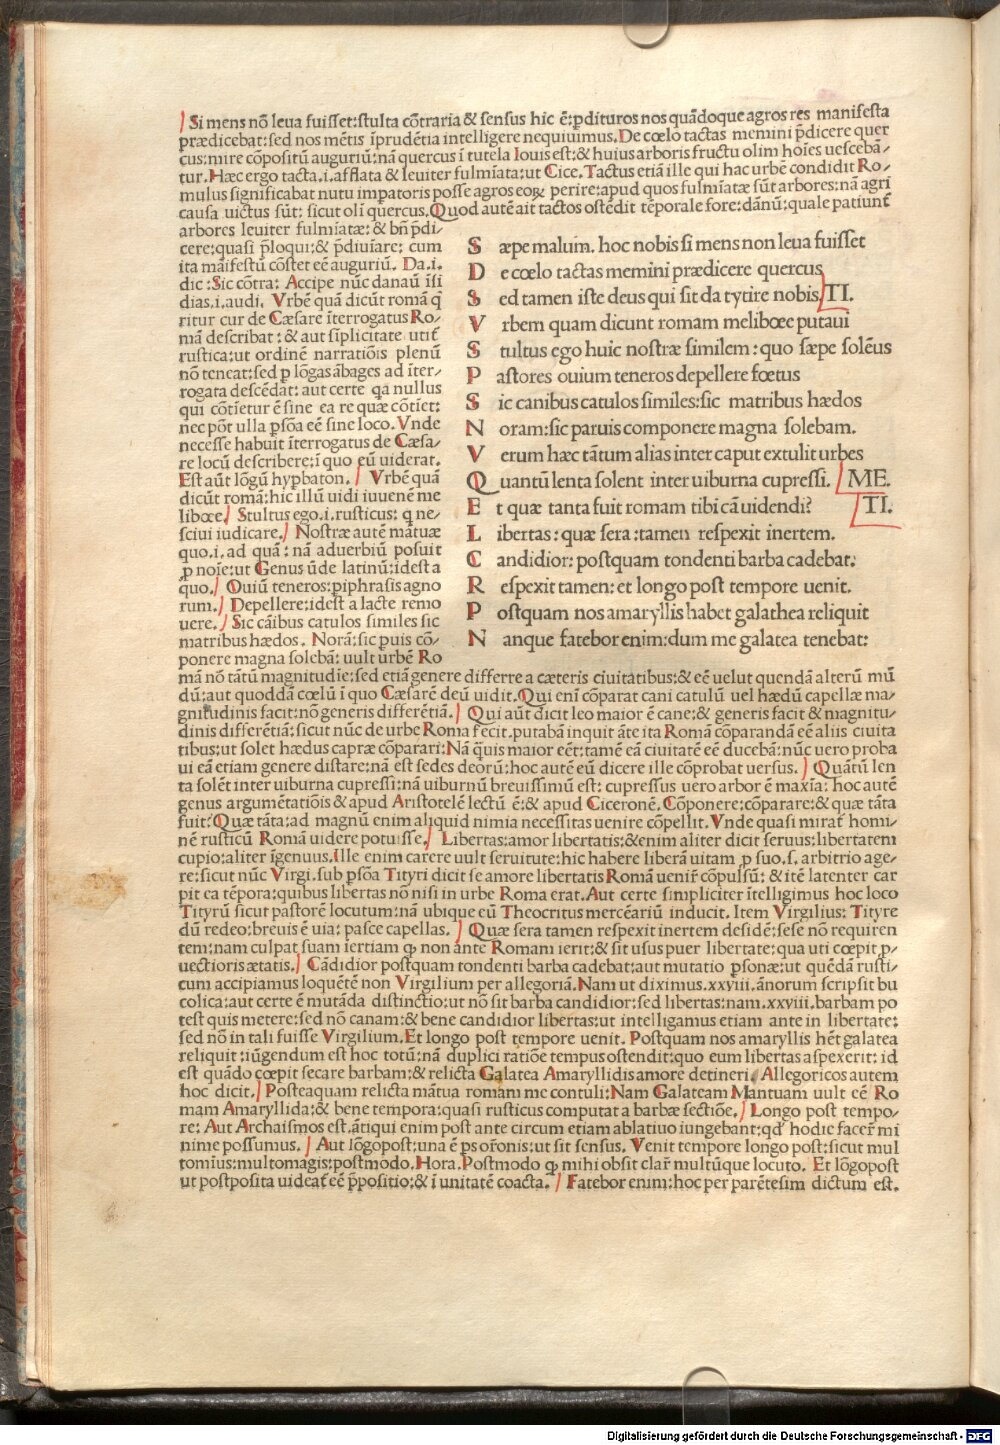 Si mens nō leua fuisset:stulta cōtraria & sensus hic ē:pdituros nos quādoque agros res manifesta
prædicebat:sed nos mētis īprudētia intelligere nequiuimus.De cœlo tactas memini p̄dicere quer
cus:mire cōpositū auguriū:nā quercus ī tutela Iouis est:& huius arboris fructu olim hoīes uescebā/
tur.Hæc ergo tacta.i.afflata & leuiter fulmīata:ut Cice.Tactus etiā ille qui hac urbē condidit Ro/
mulus significabat nutu impatoris posse agros eoꝝ perire:apud quos fulmīatæ sūt arbores:nā agri
causa uicti sūt: sicut oli quercus.Quod autē ait tactos ostēdit tēporale fore:dānū:quale patiunt̄
arbores leuiter fulmīatæ: & bn̄ p̄di/
cere:quasi p̄loqui:& p̄diuīare: cum
ita māifestū cōstet eē auguriū. Da.i.
dic :Sic cōtra: Accipe nūc danaū īsi
dias.i.audi. Vrbē quā dicūt romā q̄
ritur cur de Cæsare īterrogatus Ro/
mā describat : & aut sīplicitate utit̄
rustica:ut ordinē narratiōis plenū
nō teneat:sed p lōgas ābages ad īter/
rogata descēdat: aut certe qa nullus
qui cōtīetur ē sine ea re quæ cōtīet:
nec pōt ulla psōa eē sine loco.Vnde
necesse habuit īterrogatus de Cæsa/
re locū describere:ī quo eū uiderat.
Est aūt lōgū hypbaton. Vrbē quā
dicūt romā:hic illū uidi iuuenē me
libœe. Stultus ego.i.rusticus: q ne/
sciui iudicare. Nostræ autē mātuæ
quo.i.ad quā : nā aduerbiū posuit
p noīe:ut Genus ūde latinū:idest a
quo. Ouiū teneros:piphrasis agno
rum. Depellere:idest a lacte remo
uere. Sic cāibus catulos similes sic
matribus hædos. Norā:sic puis cō/
ponere magna solebā: uult urbē Ro
S æpe malum. hoc nobis si mens non leua fuisset
D e cœlo tactas memini prædicere quercus
S ed tamen iste deus qui sit da tytire nobis. TI.
V rbem quam dicunt romam melibœe putaui
S tultus ego huic nostræ similem : quo sæpe solēus
P astores ouium teneros depellere fœtus
S ic canibus catulos similes:sic matribus hædos
N oram:sic paruis componere magna solebam.
V erum hæc tātum alias inter caput extulit urbes
Q uantū lenta solent inter uiburna cupressi. ME.
E t quæ tanta fuit romam tibi cā uidendi? TI.
L ibertas: quæ sera:tamen respexit inertem.
C andidior: postquam tondenti barba cadebat:
R espexit tamen: et longo post tempore uenit.
P ostquam nos amaryllis habet galathea reliquit
N anque fatebor enim:dum me galatea tenebat:
mā nō tātū magnitudīe:sed etiā genere differre a cæteris ciuitatibus:& eē uelut quendā alterū mū
dū:aut quoddā cœlū ī quo Cæsarē deū uidit.Qui enī cōparat cani catulū uel hædū capellæ ma/
gnitudinis facit:nō generis differētiā. Qui aūt dicit leo maior ē cane:& generis facit & magnitu/
dinis differētiā:sicut nūc de urbe Roma fecit.putabā inquit āte ita Romā cōparandā eē aliis ciuita
tibus:ut solet hædus capræ cōparari:Nā q̄uis maior eēt:tamē cā ciuitatē eē ducebā:nūc uero proba
ui eā etiam genere distare:nā est sedes deorū:hoc autē eū dicere ille cōprobat uersus. Quātū len
ta solēt inter uiburna cupressi:nā uiburnū breuissimū est: cupressus uero arbor ē maxīa: hoc autē
genus argumētatiōis & apud Aristotelē lectū ē:& apud Ciceronē.Cōponere:cōparare:& quæ tāta
fuit:Quæ tāta:ad magnū enim aliquid nimia necessitas uenire cōpellit.Vnde quasi mirat̄ homi/
nē rusticū Romā uidere potuisse. Libertas:amor libertatis:&enim aliter dicit seruus:libertatem
cupio:aliter īgenuus.Ille enim carere uult seruitute:hic habere liberā uitam p suo.s. arbitrio age/
re:sicut nūc Virgi.sub psōa Tityri dicit se amore libertatis Romā uenir̄ cōpulsū: & itē latenter car
pit ea tēpora:quibus libertas nō nisi in urbe Roma erat.Aut certe simpliciter ītelligimus hoc loco
Tityrū sicut pastorē locutum:nā ubique eū Theocritus mercēariū inducit.Item Virgilius: Tityre
dū redeo:breuis ē uia: pasce capellas. Quæ sera tamen respexit inertem desidē:sese nō requiren
tem:nam culpat suam iertiam q non ante Romam ierit:& sit usus puer libertate:qua uti cœpit p/
uectioris ætatis. Cādidior postquam tondenti barba cadebat:aut mutatio psonæ:ut quēdā rusti/
cum accipiamus loquētē non Virgilium per allegoriā.Nam ut diximus.xxviii.ānorum scripsit bu
colica:aut certe ē mutāda distinctio:ut nō sit barba candidior:sed libertas:nam.xxviii.barbam po
test quis metere:sed nō canam:& bene candidior libertas:ut intelligamus etiam ante in libertate:
sed nō in tali fuisse Virgilium.Et longo post tempore uenit. Postquam nos amaryllis hēt galatea
reliquit :iūgendum est hoc totū:nā duplici ratiōe tempus ostendit:quo eum libertas aspexerit: id
est quādo cœpit secare barbam:& relicta Galatea Amaryllidis amore detineri. Allegoricos autem
hoc dicit. Posteaquam relicta mātua romam me contuli:Nam Galateam Mantuam uult eē Ro
mam Amaryllida:& bene tempora:quasi rusticus computat a barbæ sectiōe. Longo post tempo/
re: Aut Archaismos est.ātiqui enim post ante circum etiam ablatiuo iungebant:qd̄ hodie facer̄ mi
nime possumus. Aut lōgopost:una ē ps or̄onis:ut sit sensus. Venit tempore longo post:sicut mul
tomīus:multomagis:postmodo.Hora.Postmodo q mihi obsit clar̄ multūque locuto. Et lōgopost
ut postposita uideat̄ eē p̄positio:& ī unitatē coacta. Fatebor enim:hoc per parētesim dictum est.
Digitalisierung gefördert durch die Deutsche Forschungsgemeinschaft - DFG